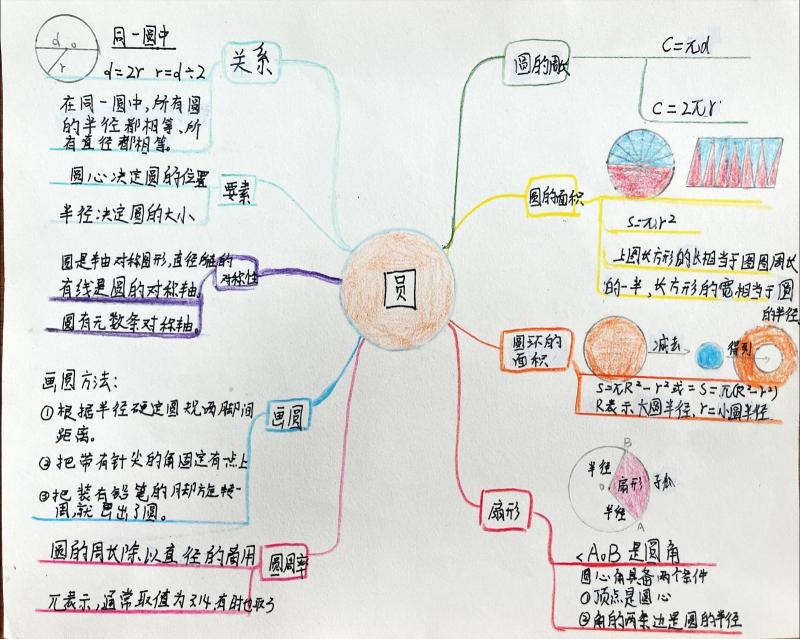 同一圆中
d
r
d=2r r=d÷2
关系
在同一圆中,所有圆
的半径都相等、所
有直径都相等。
圆心决定圆的位置
要素
半径决定圆的大小
圆是轴对称图形,直径所在的
有线是圆的对称轴。
对称性
圆有无数条对称轴。
画圆方法:
①根据半径确定圆规两脚间
距离。
②把带有针尖的角固定有点上
③把装有铅笔的脚旋转一
周,就画出了圆。
画圆
圆的周长除以直径的商用
圆周率
π表示,通常取值为3.14,有时也取3
圆
圆的周长
C=πd
C=2πr
圆的面积
S=πr²
上图长方形的长相当于圆圆周长
的一半,长方形的宽相当于圆
的半径
圆环的
面积
减去
得到
S=πR²-r²或=S=π(R²-r²)
R表示大圆半径,r=小圆半径
扇形
B
半径
O
扇形
半径
A
<AOB是圆角
圆心角具备两个条件
①顶点是圆心
②角的两条边是圆的半径